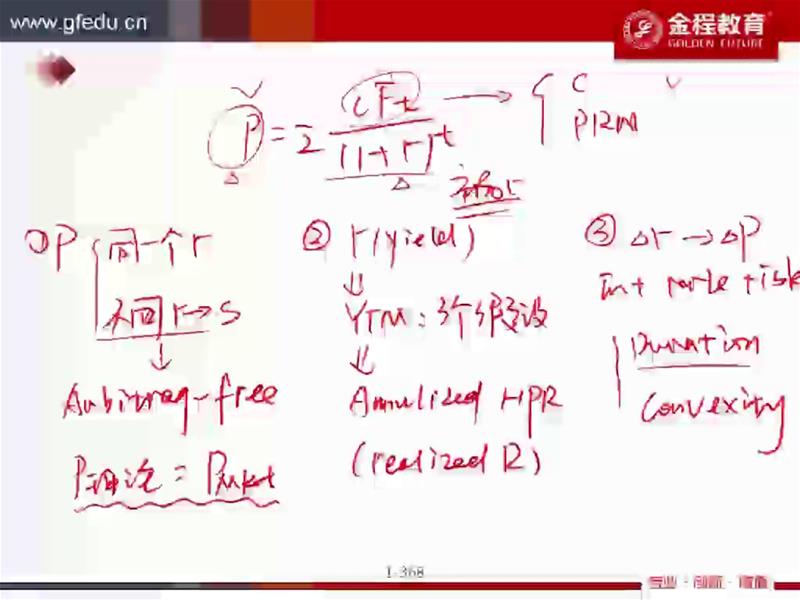 www.gfedu.cn
金程教育
GOLDEN FUTURE
P = Σ CFt / (1+r)^t → { C
PRN
① P { 同一个 r
不同 r → S
↓
Arbitrag-free
P理论 = Pmket
② r (yield)
⇓
YTM: 3个假设
⇓
Annulized HPR
(realized R)
③ Δr → ΔP
Int rate risk
Duration
Convexity
1-368
专业·创新·增值